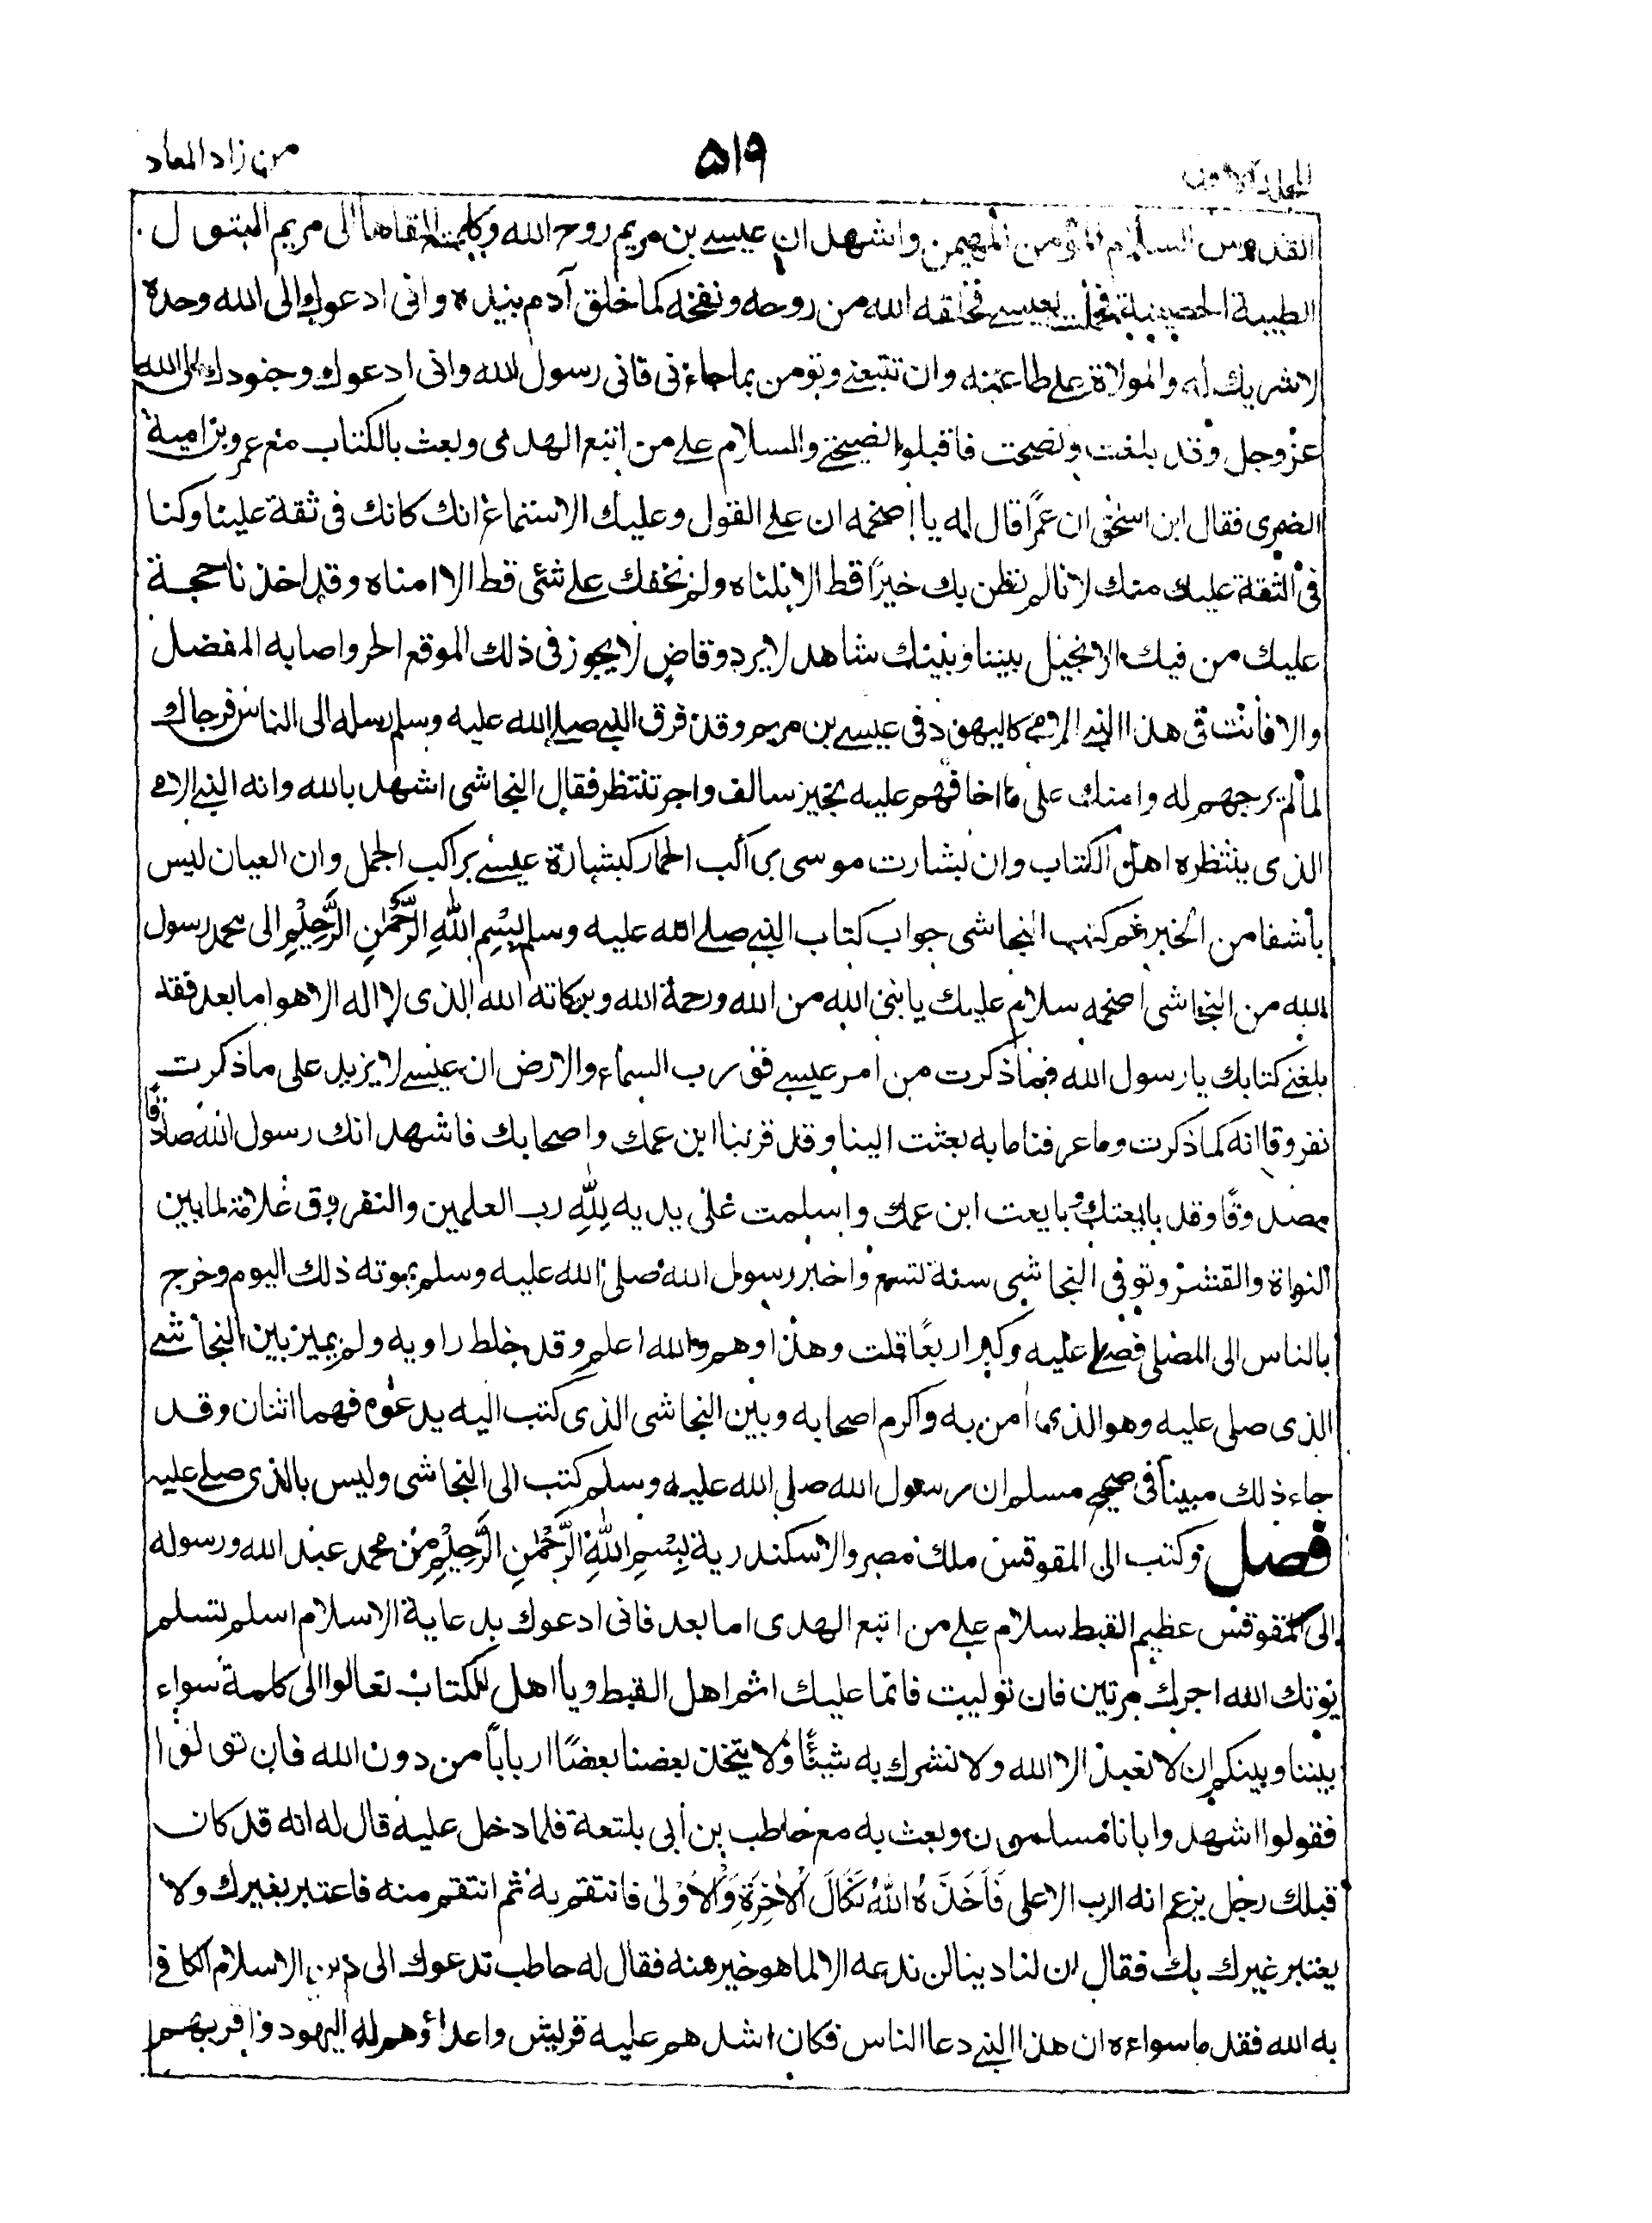 من زاد المعاد
٥١٩
القدوس السلام المؤمن المهيمن واشهد ان عيسے بن مريم روح الله وكلمته القاها الى مريم البتول
الطيبة الحصينة فحملت بعيسے فخلقه الله من روحه ونفخه كما خلق آدم بيده وانى ادعوك الى الله وحده
لا شريك له والموالاة علے طاعته وان تتبعنے وتؤمن بما جاءنى فانى رسول الله وانى ادعوك وجنودك الى الله
عز وجل وقد بلغت ونصحت فاقبلوا نصيحتے والسلام علے من اتبع الهدى وبعث بالكتاب مع عمرو بن امية
الضمرى فقال ابن اسحق ان عمرًا قال له يا اصحمه ان علے القول وعليك الاستماع انك كانك فى ثقة علينا وكنا
فى الثقة عليك منك لانا لم نظن بك خيرًا قط الا نلناه ولم نخفك علے شئى قط الا امناه وقد اخذنا حجة
عليك من فيك الانجيل بيننا وبينك شاهد لا يرد وقاضٍ لا يجوز فى ذلك الموقع الحر واصابه المفضل
والا فانت فى هذا النبے الامے كاليهود فى عيسے بن مريم وقد فرق النبے صلے الله عليه وسلم رسله الى الناس فرجاك
لما لم يرجهم له وامنك على ما اخافهم عليه بخير سالف واجر تنتظر فقال النجاشى اشهد بالله وانه النبے الامے
الذى ينتظره اهل الكتاب وان بشارت موسى براكب الحمار كبشارة عيسے براكب الجمل وان العيان ليس
بأشفا من الخبر ثم كتب النجاشى جواب كتاب النبے صلے الله عليه وسلم بِسْمِ اللهِ الرَّحْمٰنِ الرَّحِيْمِ الى محمد رسول
الله من النجاشى اصحمه سلام عليك يا نبى الله من الله ورحمة الله وبركاته الله الذى لا اله الا هو اما بعد فقد
بلغنے كتابك يا رسول الله فيما ذكرت من امر عيسے فورب السماء والارض ان عيسے لا يزيد على ما ذكرت
تفروقا انه كما ذكرت وما عرفنا ما به بعثت الينا وقد قربنا ابن عمك واصحابك فاشهد انك رسول الله صادقًا
مصدوقًا وقد بايعتك وبايعت ابن عمك واسلمت على يديه لِلّٰهِ رب العلمين والتفروق علاقة لما بين
النواة والقشر وتوفى النجاشى سنة تسع واخبر رسول الله صلى الله عليه وسلم بموته ذلك اليوم وخرج
بالناس الى المصلى فصلے عليه وكبر اربعًا قلت وهذا وهم والله اعلم وقد خلط راويه ولم يميز بين النجاشے
الذى صلى عليه وهو الذى امن به واكرم اصحابه وبين النجاشى الذى كتب اليه يدعوه فهما اثنان وقد
جاء ذلك مبيناً فى صحيح مسلم ان رسول الله صلى الله عليه وسلم كتب الى النجاشى وليس بالذى صلے عليه
فصل وكتب الى المقوقس ملك مصر والاسكندرية بِسْمِ اللهِ الرَّحْمٰنِ الرَّحِيْمِ من محمد عبد الله ورسوله
الى المقوقس عظيم القبط سلام علے من اتبع الهدى اما بعد فانى ادعوك بدعاية الاسلام اسلم تسلم
يؤتك الله اجرك مرتين فان توليت فانما عليك اثم اهل القبط ويا اهل الكتاب تعالوا الى كلمة سواء
بيننا وبينكم ان لا نعبد الا الله ولا نشرك به شيئًا ولا يتخذ بعضنا بعضًا ارباباً من دون الله فان تولوا
فقولوا اشهدوا بانا مسلمون وبعث به مع حاطب بن أبى بلتعة فلما دخل عليه قال له انه قد كان
قبلك رجل يزعم انه الرب الاعلى فَاَخَذَهُ اللهُ نَكَالَ الْاٰخِرَةِ وَالْاُوْلٰى فانتقم به ثم انتقم منه فاعتبر بغيرك ولا
يعتبر غيرك بك فقال ان لنا دينا لن ندعه الا لما هو خير منه فقال له حاطب تدعوك الى دين الاسلام الكافے
به الله فقد ما سواءه ان هذا النبے دعا الناس فكان اشدهم عليه قريش واعداؤهم له اليهود واقربهم